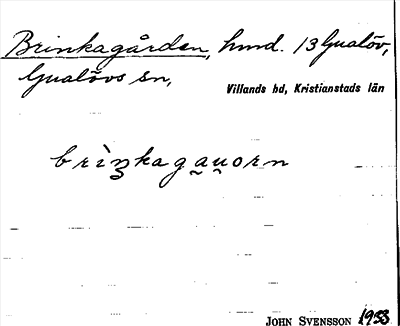 Brinkagården, hmd. 13 Gualöv,
Gualövs sn,
Villands hd, Kristianstads län
brìŋkaga̯u̯orn
JOHN SVENSSON 1933